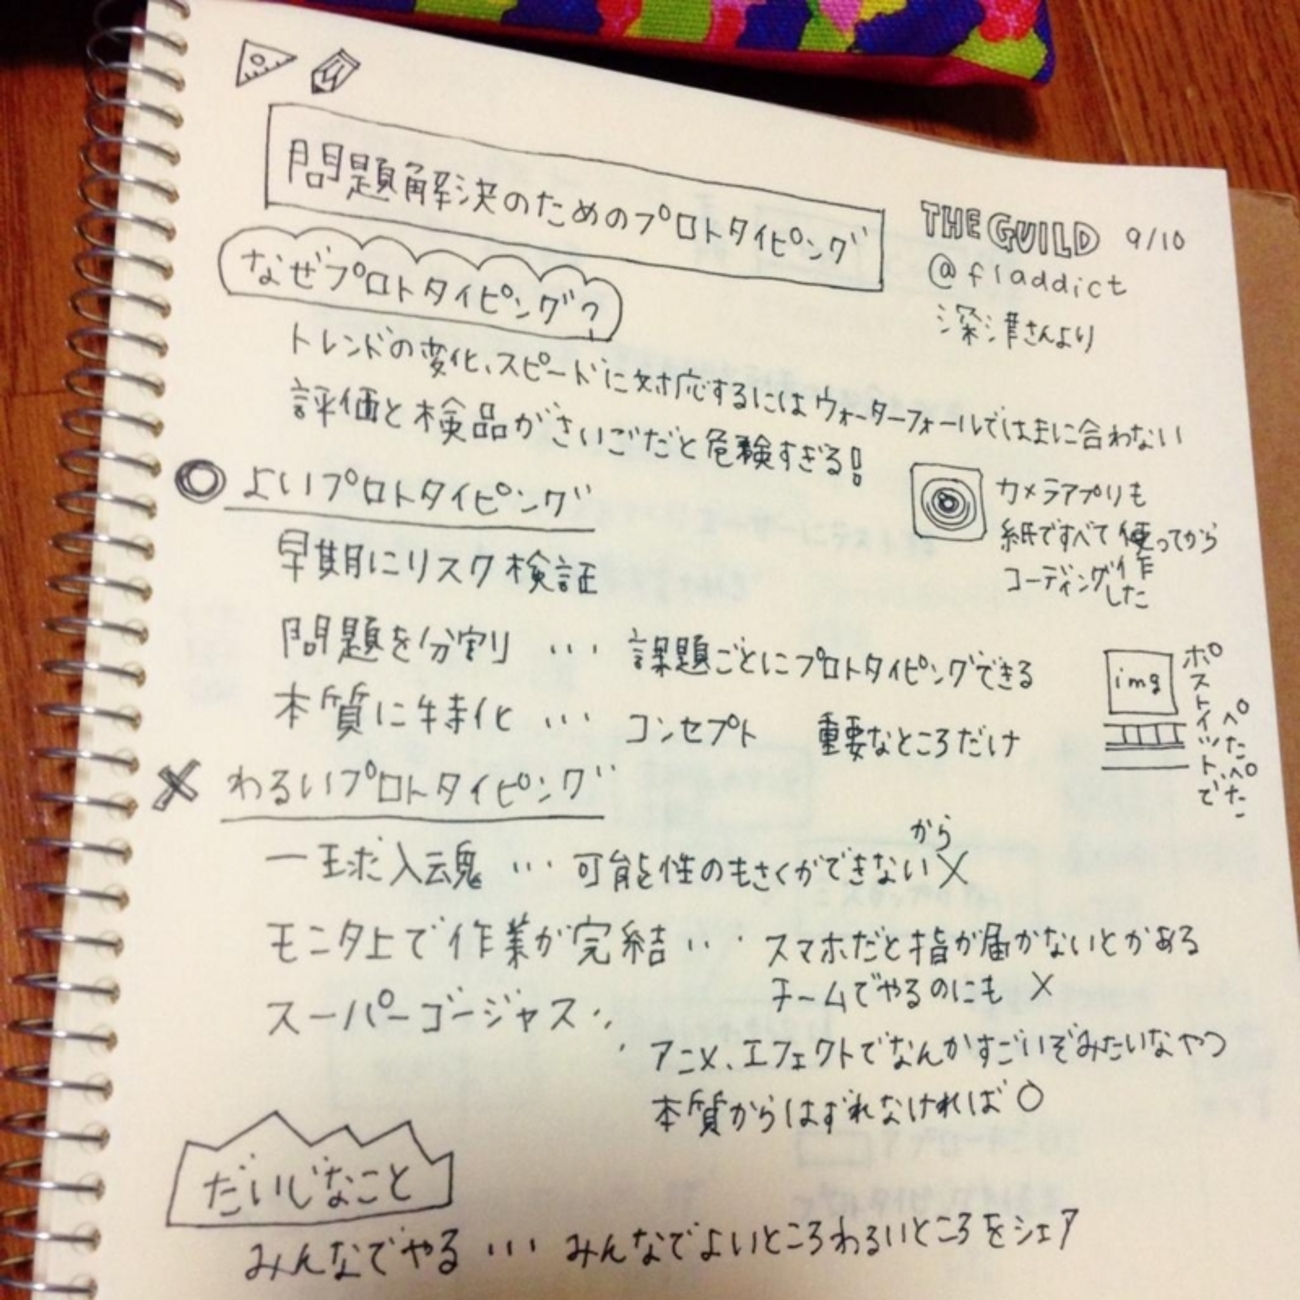 問題解決のためのプロトタイピング
THE GUILD 9/10
@fladdict
深津さんより
なぜプロトタイピング?
トレンドの変化、スピードに対応するにはウォーターフォールではまに合わない
評価と検品がさいごだと危険すぎる!
カメラアプリも
紙ですべて使ってから
コーディング作
した
◎ よいプロトタイピング
早期にリスク検証
問題を分割 ... 課題ごとにプロトタイピングできる
本質に特化 ... コンセプト 重要なところだけ
img
ポストイットで
ペたペた
× わるいプロトタイピング
一球入魂 ... 可能性のもさくができないから×
モニタ上で作業が完結 ... スマホだと指が届かないとかある
チームでやるのにも ×
スーパーゴージャス...
アニメ、エフェクトでなんかすごいぞみたいなやつ
本質からはずれなければ○
だいじなこと
みんなでやる ... みんなでよいところわるいところをシェア